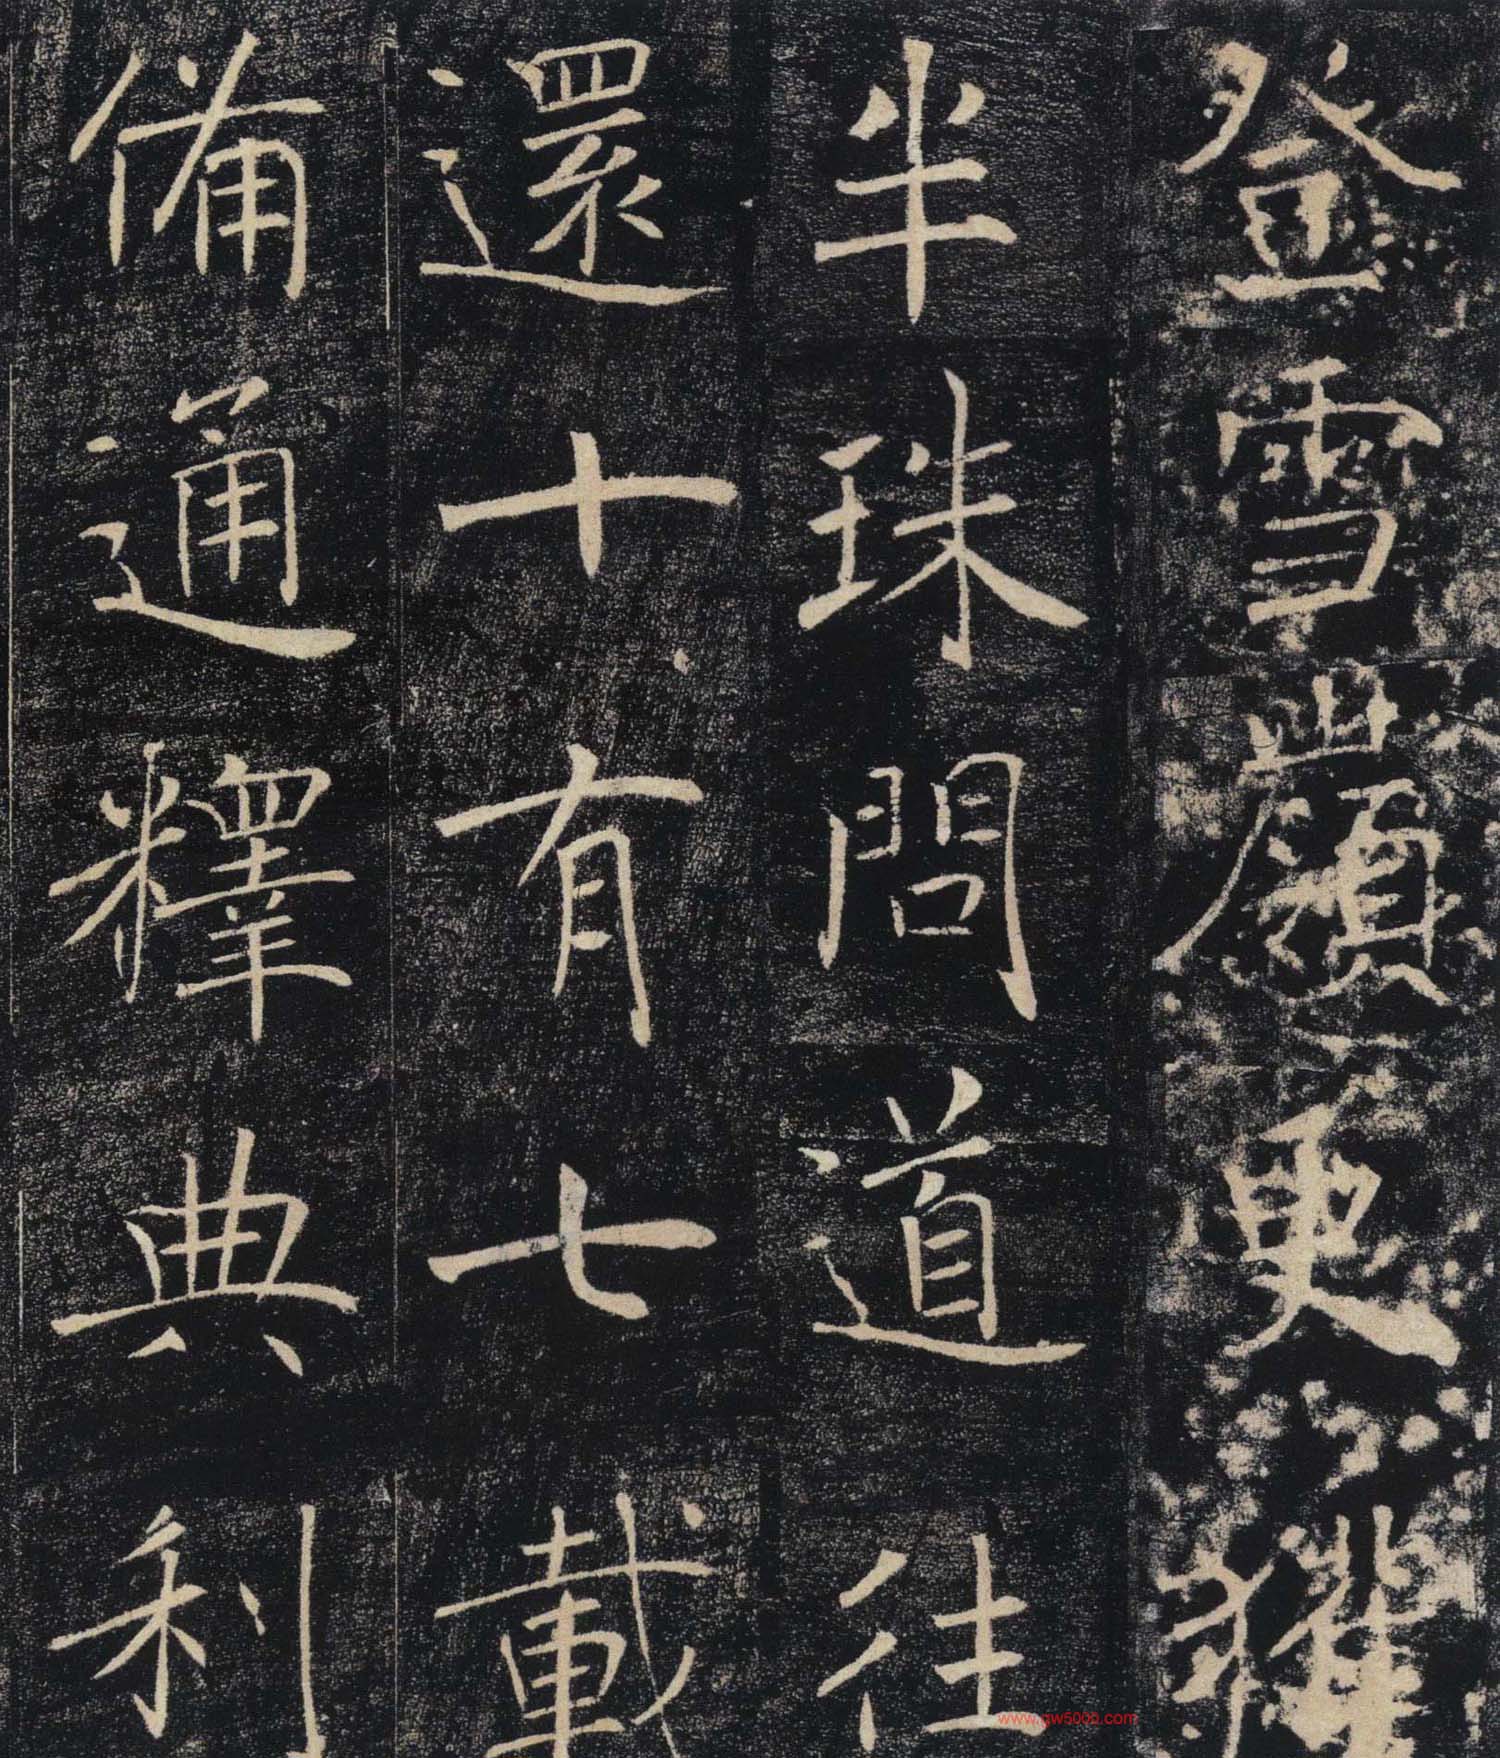 登雪嶺更獲
半珠問道往
還十有七載
備通釋典利
www.gw500b.com